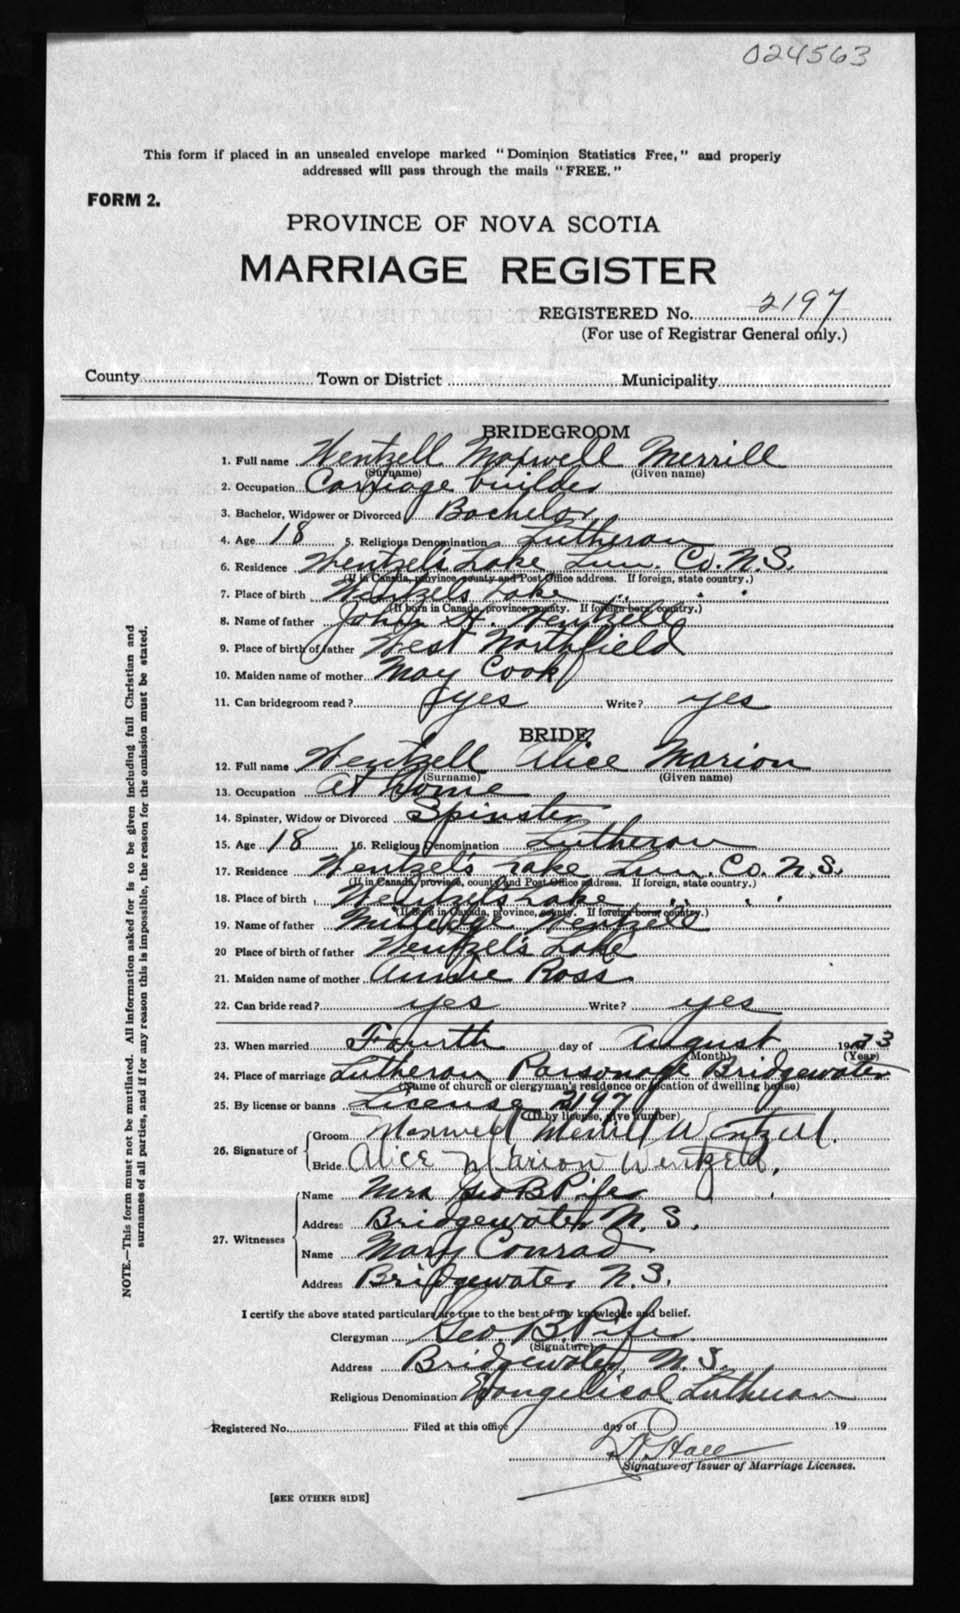 024563
This form if placed in an unsealed envelope marked "Dominion Statistics Free," and properly
addressed will pass through the mails "FREE."
FORM 2.
PROVINCE OF NOVA SCOTIA
MARRIAGE REGISTER
REGISTERED No. 2197
(For use of Registrar General only.)
County Town or District Municipality
BRIDEGROOM
1. Full name Wentzell Maxwell Merrill
(Surname) (Given name)
2. Occupation Carriage builder
3. Bachelor, Widower or Divorced Bachelor
4. Age 18 5. Religious Denomination Lutheran
6. Residence Wentzel's Lake Lun. Co. N.S.
(If in Canada, province, county and Post Office address. If foreign, state country.)
7. Place of birth Wentzels Lake " " "
(If born in Canada, province, county. If foreign born, country.)
8. Name of father John H. Wentzell
9. Place of birth of father West Northfield
10. Maiden name of mother May Cook
11. Can bridegroom read? yes Write? yes
BRIDE
12. Full name Wentzell Alice Marion
(Surname) (Given name)
13. Occupation At Home
14. Spinster, Widow or Divorced Spinster
15. Age 18 16. Religious Denomination Lutheran
17. Residence Wentzel's Lake Lun. Co. N.S.
(If in Canada, province, county and Post Office address. If foreign, state country.)
18. Place of birth Wentzel's Lake " " "
(If born in Canada, province, county. If foreign born, country.)
19. Name of father Milledge Wentzell
20 Place of birth of father Wentzel's Lake
21. Maiden name of mother Annie Ross
22. Can bride read? yes Write? yes
23. When married Fourth day of August 1933
(Month) (Year)
24. Place of marriage Lutheran Parsonage Bridgewater
(Name of church or clergyman's residence or location of dwelling house)
25. By license or banns License 2197
(If by license, give number)
26. Signature of Groom Maxwell Merrill Wentzell.
Bride Alice Marion Wentzell.
27. Witnesses Name Mrs Geo B Pifer
Address Bridgewater N. S.
Name Mary Conrad
Address Bridgewater N.S.
I certify the above stated particulars are true to the best of my knowledge and belief.
Clergyman Geo. B. Pifer
(Signature)
Address Bridgewater, N.S.
Religious Denomination Evangelical Lutheran
Registered No. Filed at this office day of 19
Hall
Signature of Issuer of Marriage Licenses.
[SEE OTHER SIDE]
NOTE.—This form must not be mutilated. All information asked for is to be given including full Christian and
surnames of all parties, and if for any reason this is impossible, the reason for the omission must be stated.